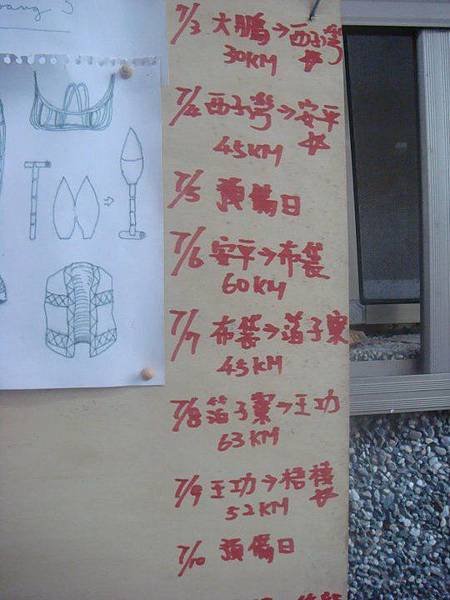 7/3 大鵬→西子灣
30KM ☆
7/4 西子灣→安平
45KM ☆
7/5 預備日
7/6 安平→布袋
60KM
7/7 布袋→箔子寮
45KM
7/8 箔子寮→王功
63KM
7/9 王功→梧棲
52KM ☆
7/10 預備日